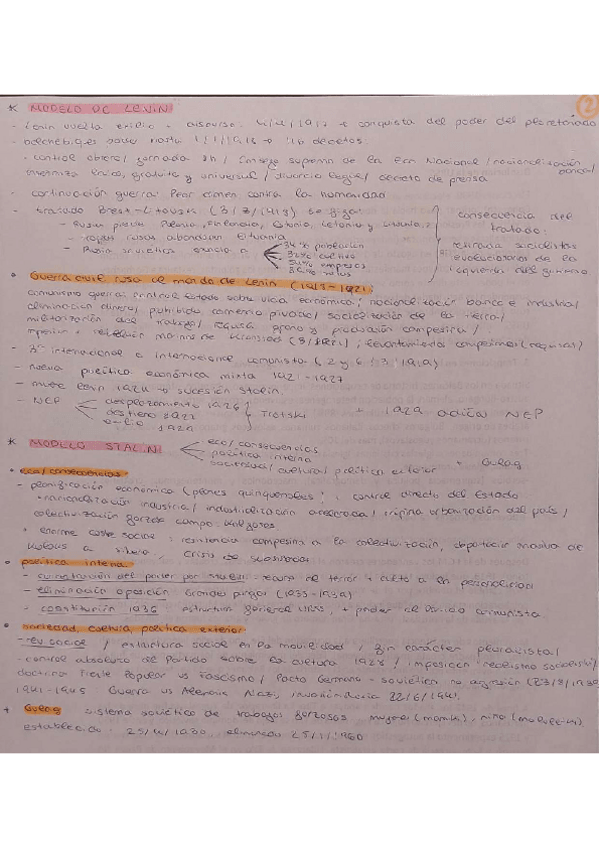 2
* MODELO DE LENIN
- Lenin vuelta exilio + discurso: 4/4/1917 → conquista del poder del proletariado
- bolcheviques poder hasta 1/1/1918 → 116 decretos
- control obrero / jornada 8h / Consejo supremo de la Ecn Nacional / nacionalización banca /
enseñanza única, gratuita y universal / divorcio legal / decreto de prensa
- continuación guerra: Peor crimen contra la humanidad
- tratado Brest-Litovsk (3/3/1918) se firma:
- Rusia pierde Polonia, Finlandia, Estonia, Letonia y Lituania
- tropas rusas abandonan
- Rusia soviética renuncia a
34% población
32% cultivo
54% empresas
89% minas
consecuencia del
tratado:
retirada socialistas
revolucionarios de la
izquierda del gobierno
• Guerra civil rusa al mando de Lenin (1917-1921)
comunismo guerra: control Estado sobre vida económica; nacionalización banca e industria /
eliminación dinero / prohibido comercio privado / socialización de la tierra /
militarización del trabajo / requisa grano y producción campesina /
+ rebelión marinos de Kronstadt (3/1921) / levantamientos campesinos
- 3ª internacional o internacional comunista (2 y 6/3/1919)
- nueva política económica mixta 1921-1927
- muere Lenin 1924 → sucesión Stalin
- NEP
desplazamiento 1926
destierro 1927
exilio 1929
Trotski + 1929 adiós NEP
* MODELO STALIN
eco / consecuencias
política interna
sociedad / cultura / política exterior + Gulag
• eco / consecuencias
- planificación económica (planes quinquenales): control directo del Estado
+ nacionalización industria / industrialización acelerada / rápida urbanización del país /
colectivización forzada campo: Koljoses
+ enorme coste social: resistencia campesina a la colectivización, deportación masiva de
Kulaks a Siberia, crisis de subsistencia
• política interna
- concentración del poder por Stalin: terror + culto a la personalidad
- eliminación oposición: Grandes purgas (1935-1939)
- constitución 1936: estructura federal URSS, + poder al Partido comunista
• sociedad, cultura, política exterior
- rev social / estructura social en la movilidad / sin carácter pluralista /
- control absoluto del Partido sobre la cultura 1928 / imposición "realismo socialista" /
doctrina Frente Popular vs Fascismo / Pacto Germano-soviético no agresión (23/8/1939
1941-1945 Guerra vs Alemania Nazi, 22/6/1941.
+ Gulag sistema soviético de trabajos forzosos mujeres niños
establecido: 25/4/1930 eliminado 25/1/1960